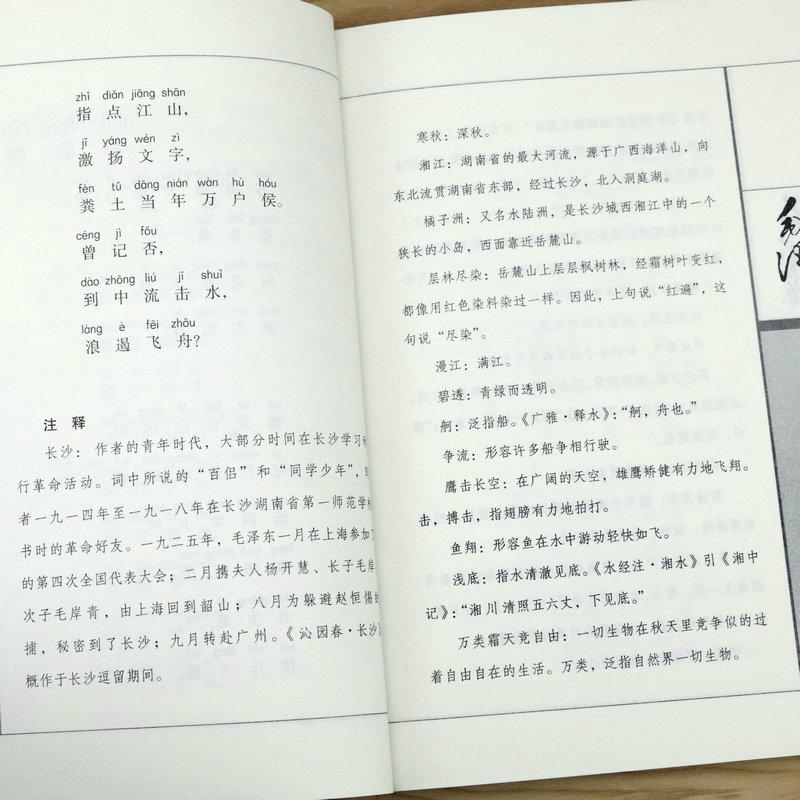 zhǐ diǎn jiāng shān
指点江山，
jī yáng wén zì
激扬文字，
fèn tǔ dāng nián wàn hù hóu
粪土当年万户侯。
céng jì fǒu
曾记否，
dào zhōng liú jī shuǐ
到中流击水，
làng è fēi zhōu
浪遏飞舟？
注 释
长沙：作者的青年时代，大部分时间在长沙学习
行革命活动。词中所说的“百侣”和“同学少年”，
者一九一四年至一九一八年在长沙湖南省第一师范学
书时的革命好友。一九二五年，毛泽东一月在上海参加
的第四次全国代表大会；二月携夫人杨开慧、长子毛岸
次子毛岸青，由上海回到韶山；八月为躲避赵恒惕
捕，秘密到了长沙；九月转赴广州。《沁园春·长沙》
概作于长沙逗留期间。
寒秋：深秋。
湘江：湖南省的最大河流，源于广西海洋山，向
东北流贯湖南省东部，经过长沙，北入洞庭湖。
橘子洲：又名水陆洲，是长沙城西湘江中的一个
狭长的小岛，西面靠近岳麓山。
层林尽染：岳麓山上层层枫树林，经霜树叶变红，
都像用红色染料染过一样。因此，上句说“红遍”，这
句说“尽染”。
漫江：满江。
碧透：青绿而透明。
舸：泛指船。《广雅·释水》：“舸，舟也。”
争流：形容许多船争相行驶。
鹰击长空：在广阔的天空，雄鹰矫健有力地飞翔。
击，搏击，指翅膀有力地拍打。
鱼翔：形容鱼在水中游动轻快如飞。
浅底：指水清澈见底。《水经注·湘水》引《湘中
记》：“湘川清照五六丈，下见底。”
万类霜天竞自由：一切生物在秋天里竞争似的过
着自由自在的生活。万类，泛指自然界一切生物。